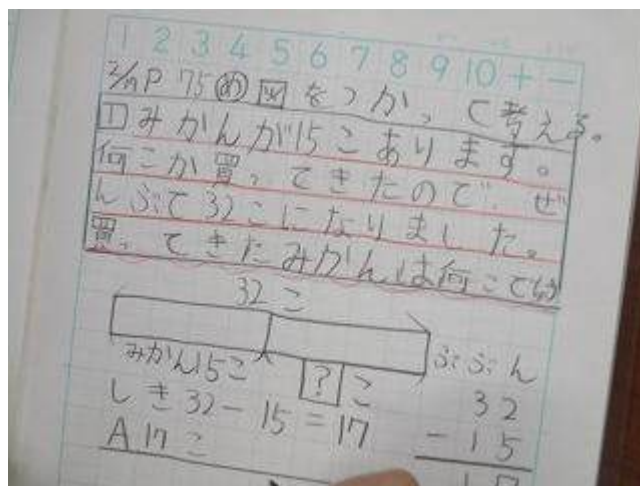 1 2 3 4 5 6 7 8 9 10 + −
P 75 め 図をつかって考える。
1 みかんが15こあります。
何こか買ってきたので、ぜ
んぶで32こになりました。
買ってきたみかんは何こですか
32こ
みかん15こ
?こ
ぶぶん
しき 32 − 15 = 17
A 17こ
32
− 15
17